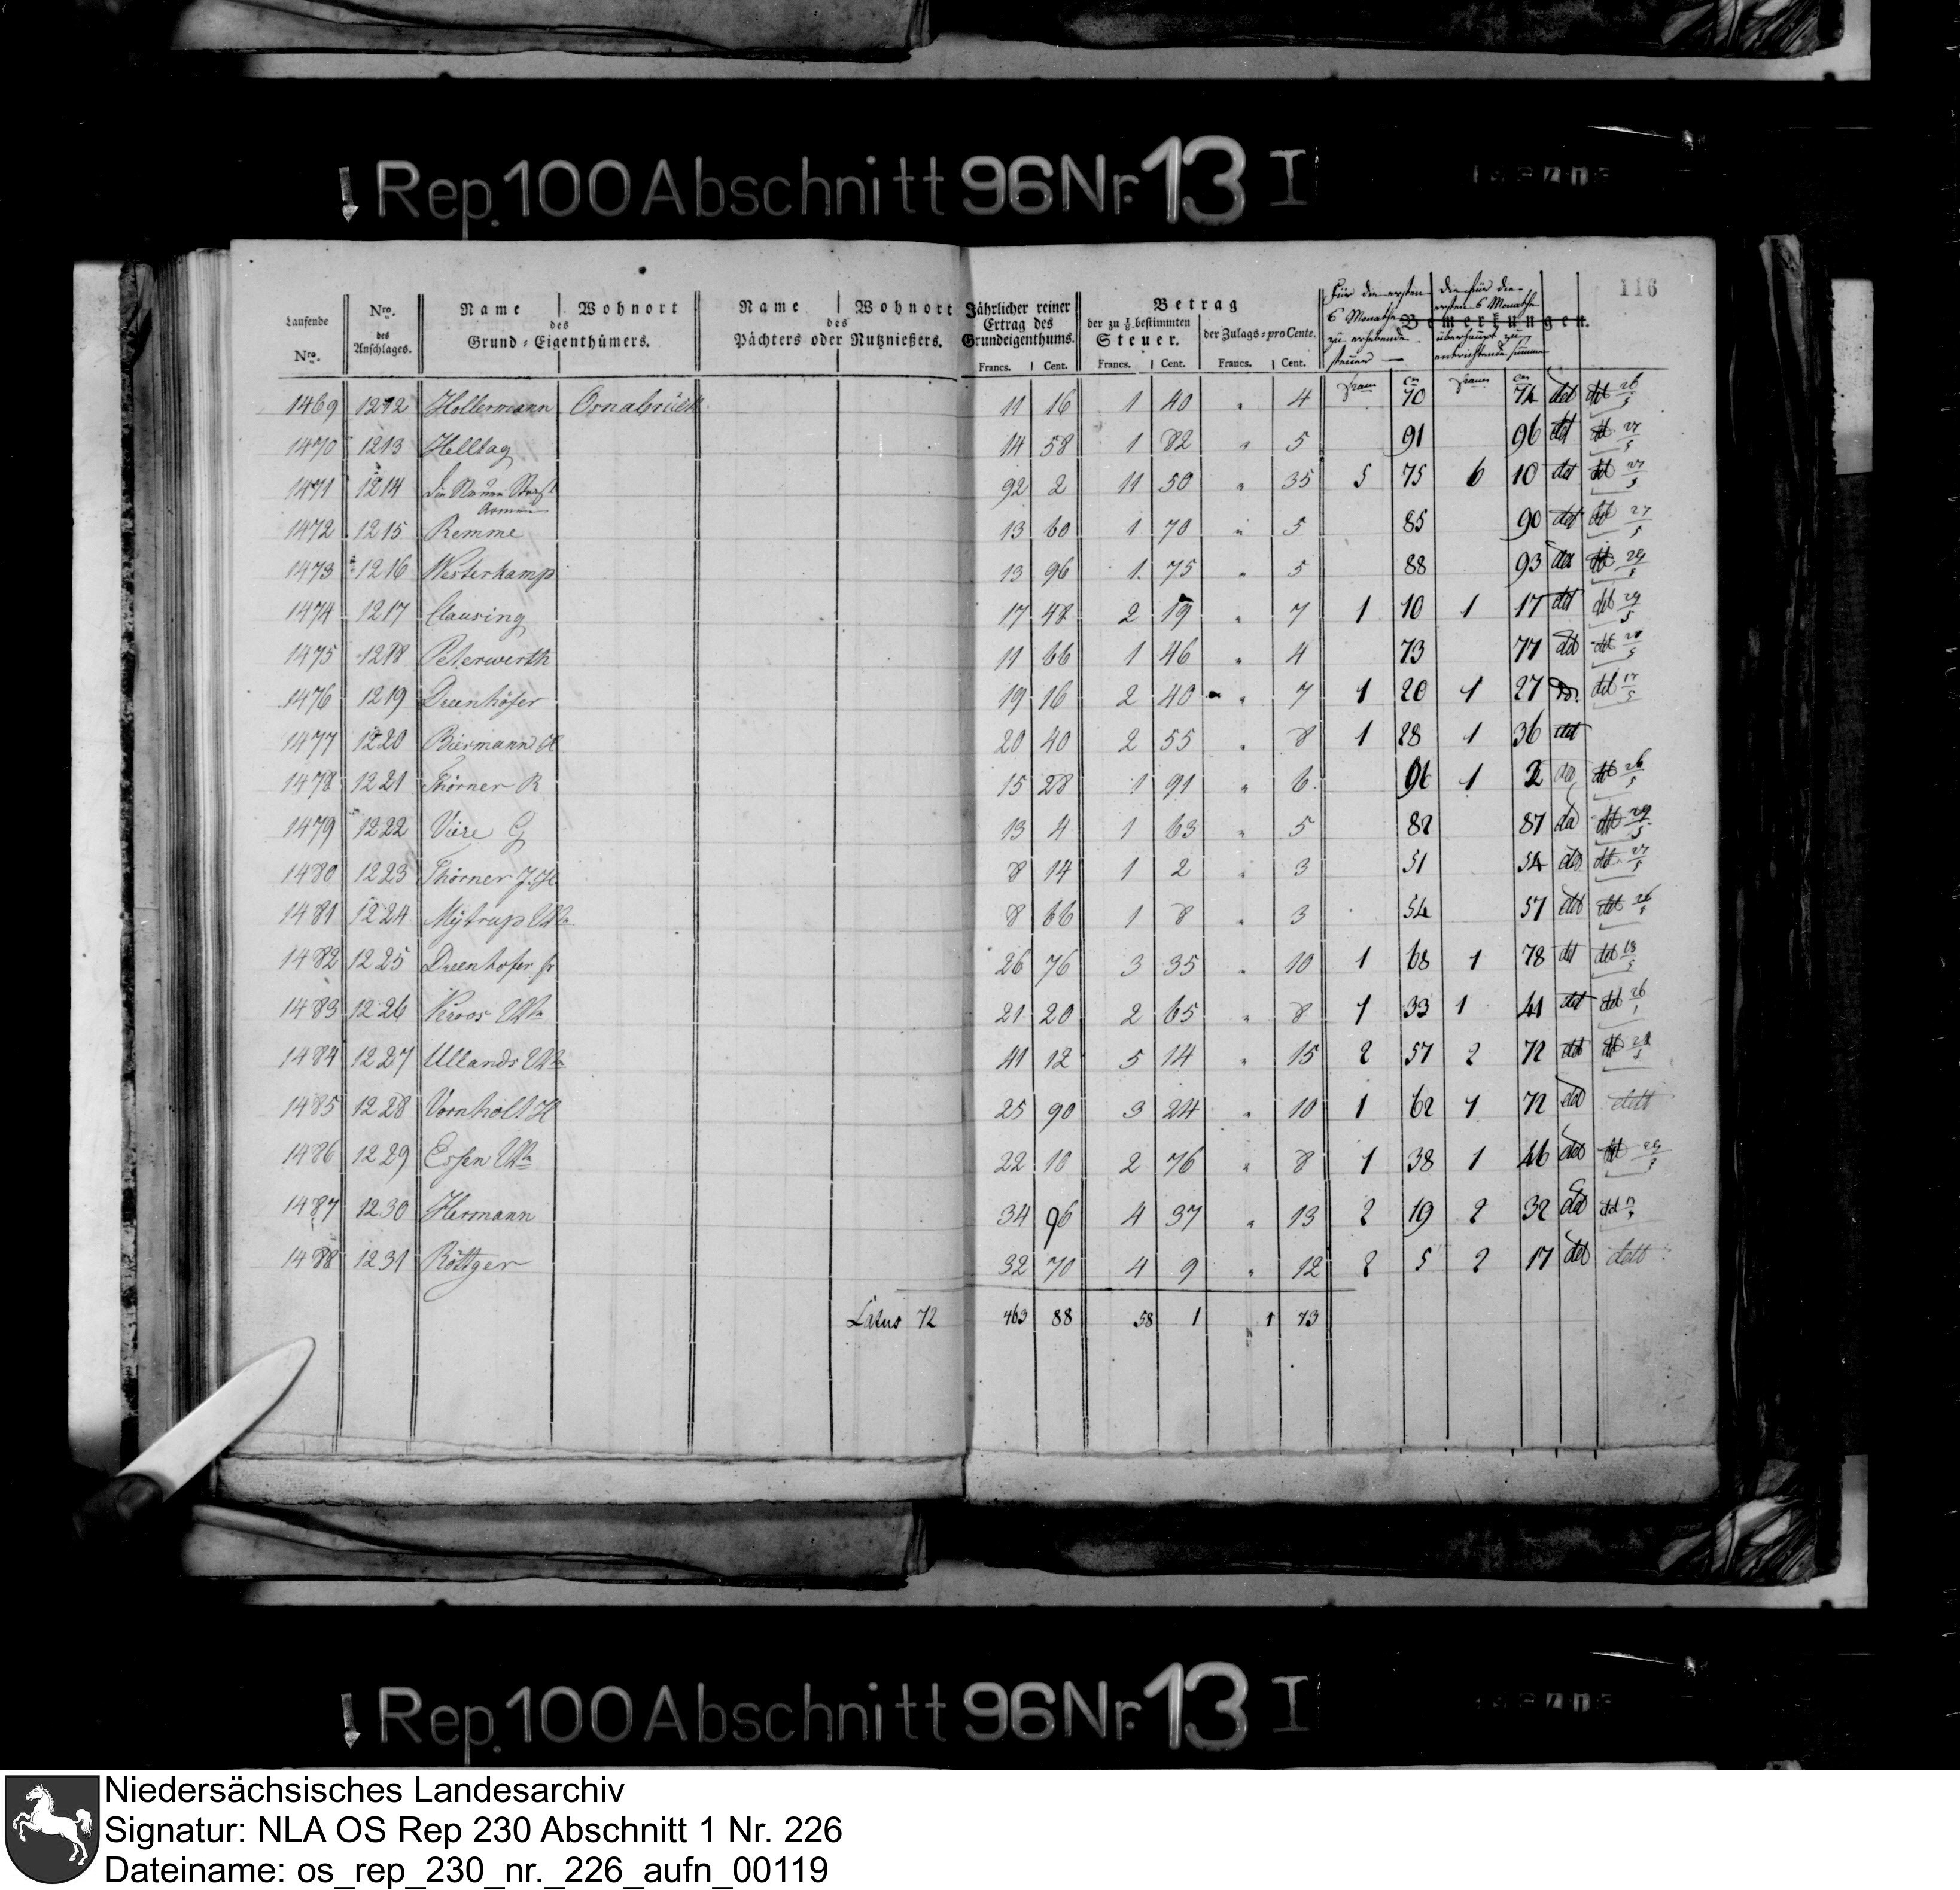 Rep. 100 Abschnitt 96 Nr. 13 I
116
Laufende Nro. | Nro. des Anschlages. | Name | Wohnort des Grund-Eigenthümers. | Name | Wohnort des Pächters oder Nutznießers. | Jährlicher reiner Ertrag des Grundeigenthums. Francs. Cent. | Betrag der zu 1/8 bestimmten Steuer. Francs. Cent. | der Zulags-pro Cente. Francs. Cent. | Für die ersten 6 Monathe zu erhebende Steuer | Die für die ersten 6 Monathe überhaupt zu entrichtende Summe | Bemerkungen.
1469 1212 Hollermann Osnabrück 11 16 1 40 " 4 70 74 det det 26/5
1470 1213 Helltag 14 58 1 82 " 5 91 96 det det 27/5
1471 1214 Die Armen 92 2 11 50 " 35 5 75 6 10 det det 27/5
1472 1215 Remme 13 60 1 70 " 5 85 90 det det 27/5
1473 1216 Westerkamp 13 96 1 75 " 5 88 93 det det 29/5
1474 1217 Clausing 17 48 2 19 " 7 1 10 1 17 det det 29/5
1475 1218 Peterwerth 11 66 1 46 " 4 73 77 det det 28/5
1476 1219 Dreenhöfer 19 16 2 40 " 7 1 20 1 27 det 17/5
1477 1220 Biermann H 20 40 2 55 " 8 1 28 1 36 det
1478 1221 Thörner R 15 28 1 91 " 6 96 1 2 det 26/5
1479 1222 Viere G 13 4 1 63 " 5 82 87 det det 29/5
1480 1223 Thörner J. H. 8 14 1 2 " 3 51 54 det det 27/5
1481 1224 Mÿtrup Wwe 8 66 1 8 " 3 54 57 det det 26/5
1482 1225 Dreenhofer jr 26 76 3 35 " 10 1 68 1 78 det det 18/5
1483 1226 Kroos Wwe 21 20 2 65 " 8 1 33 1 41 det det 26
1484 1227 Ullands Wwe 41 12 5 14 " 15 2 57 2 72 det det 28/5
1485 1228 Vornholt H 25 90 3 24 " 10 1 62 1 72 det dett
1486 1229 Essen Wwe 22 10 2 76 " 8 1 38 1 46 det det
1487 1230 Hermann 34 96 4 37 " 13 2 19 2 32 det det
1488 1231 Röttger 32 70 4 9 " 12 2 5 2 17 det dett
Latus 72 463 88 58 1 1 73
Rep. 100 Abschnitt 96 Nr. 13 I
Niedersächsisches Landesarchiv
Signatur: NLA OS Rep 230 Abschnitt 1 Nr. 226
Dateiname: os_rep_230_nr._226_aufn_00119